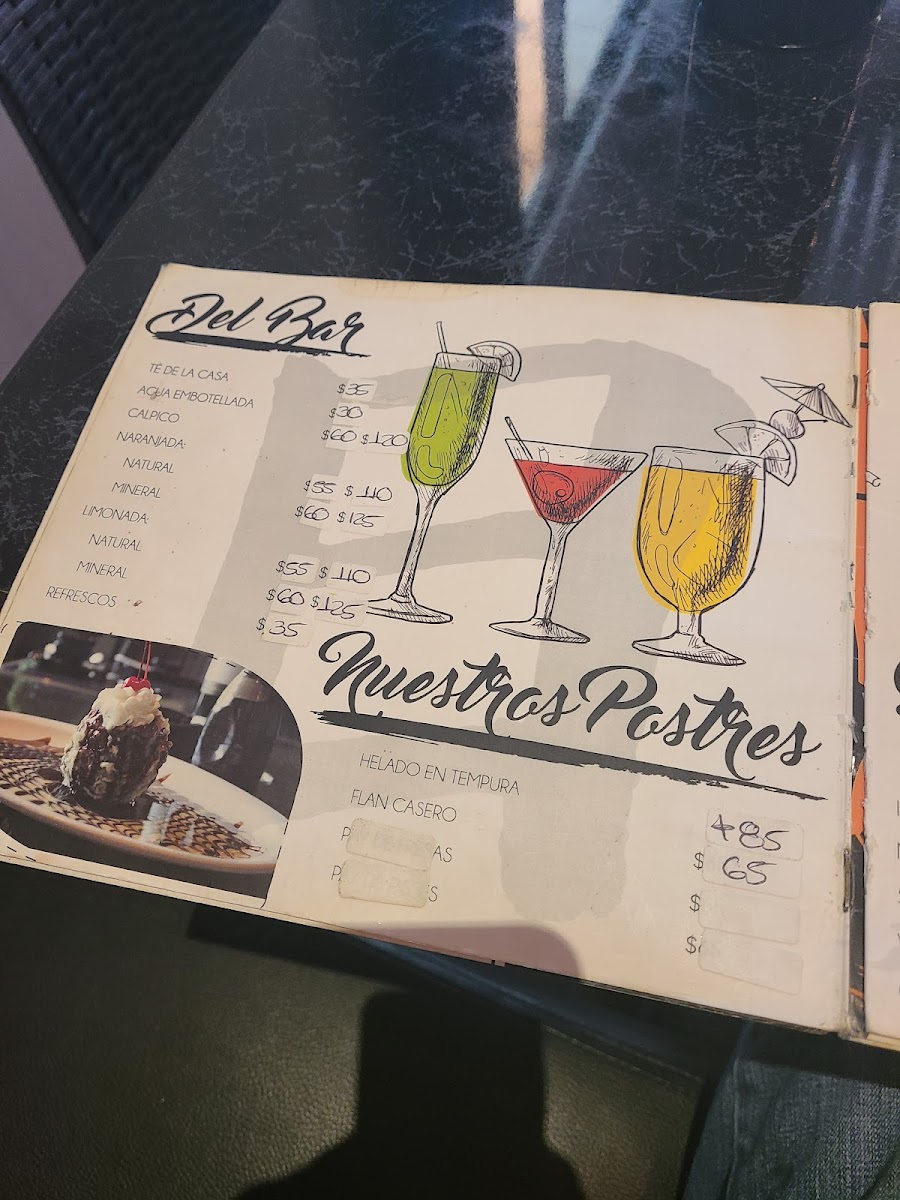 Del Bar
TÉ DE LA CASA $35
AGUA EMBOTELLADA $30
CALPICO $60 $120
NARANJADA:
NATURAL $55 $110
MINERAL $60 $125
LIMONADA:
NATURAL $55 $110
MINERAL $60 $125
REFRESCOS $35
Nuestros Postres
HELADO EN TEMPURA $85
FLAN CASERO $65